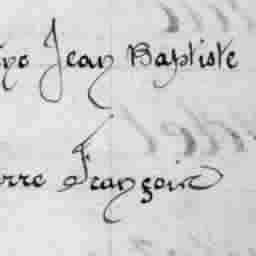 Jean Baptiste
rre François